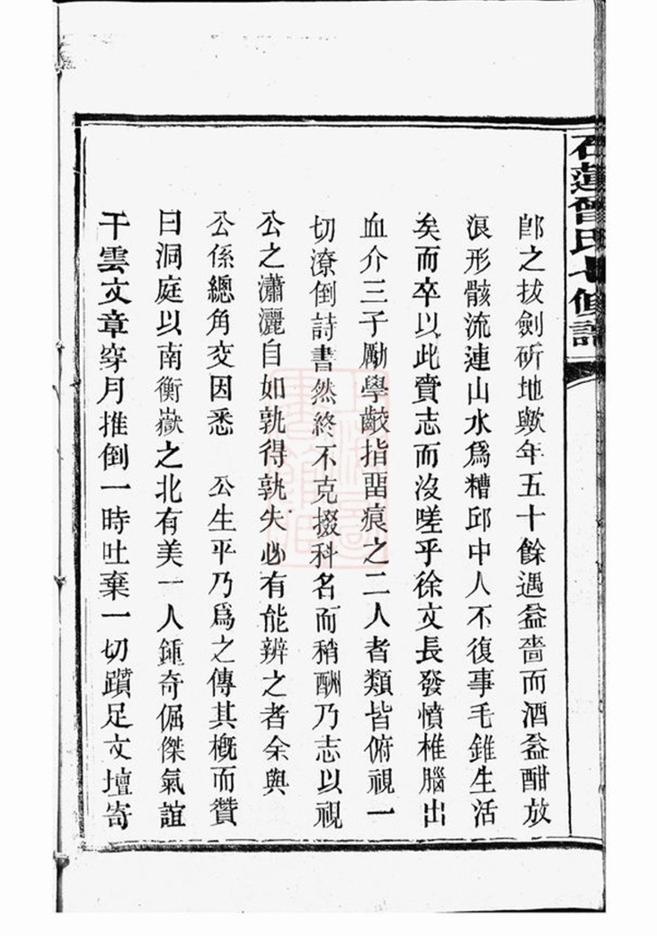 石蓮曾氏七修譜
郎之拔劍斫地歟年五十餘遇益嗇而酒益酣放
浪形骸流連山水爲糟邱中人不復事毛錐生活
矣而卒以此賫志而沒嗟乎徐文長發憤椎腦出
血介三子勵學齩指畱痕之二人者類皆俯視一
切潦倒詩書然終不克掇科名而稍酬乃志以視
公之瀟灑自如孰得孰失必有能辨之者余與
公係總角交因悉　公生平乃爲之傳其槪而贊
曰洞庭以南衡嶽之北有美一人鍾奇倔傑氣誼
干雲文章穿月推倒一時吐棄一切躓足文壇寄